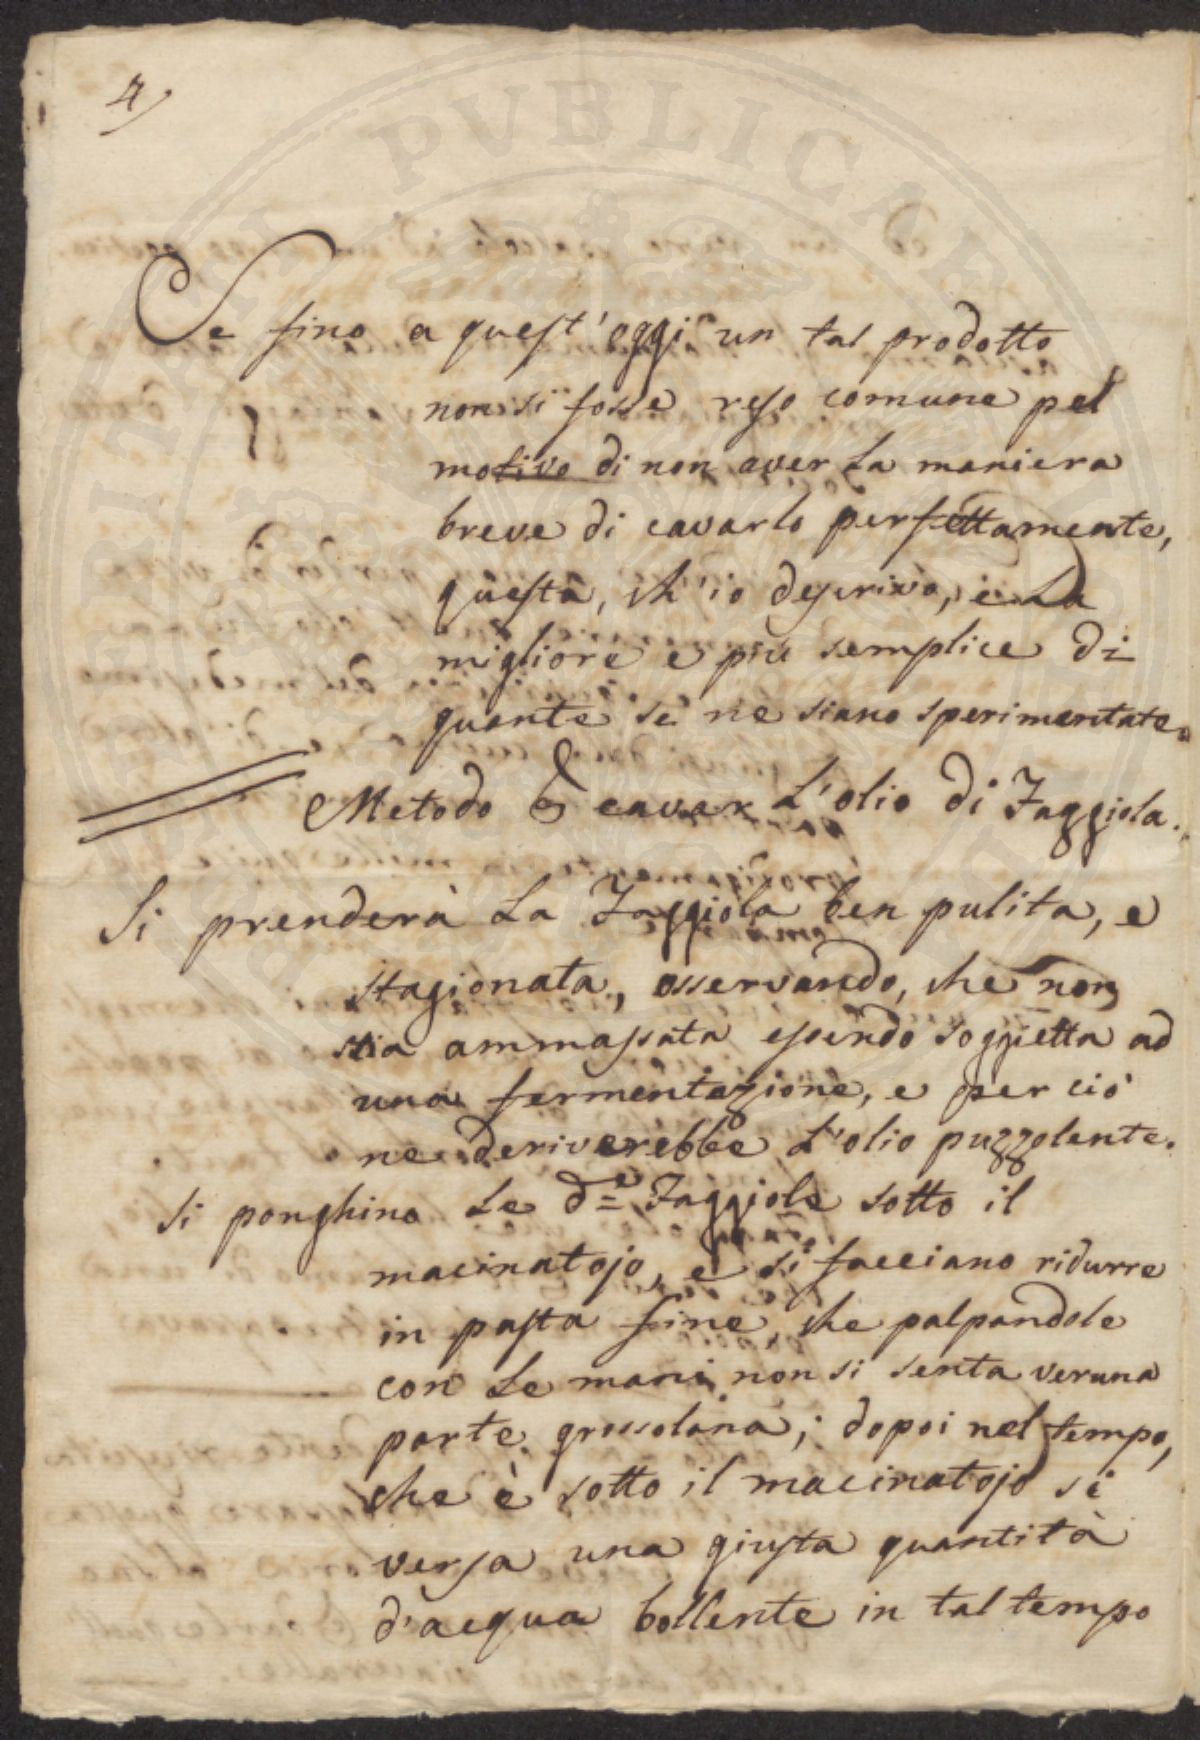 4
Se fino a quest'oggi un tal prodotto
non si fosse reso comune pel
motivo di non aver la maniera
breve di cavarlo perfettamente,
questa, ch'io descrivo, è la
migliore e più semplice di
quante se ne siano sperimentate.
Metodo cavar L'olio di Faggiola.
Si prenderà La Faggiola ben pulita, e
stagionata, osservando, che non
stia ammassata essendo soggietta ad
una fermentazione, e per ciò
ne deriverebbe L'olio puzzolente.
Si ponghino Le d.e Faggiole sotto il
macinatojo, e si facciano ridurre
in pasta fine, che palpandole
con Le mani non si senta veruna
parte grossolana; dopoi nel tempo,
che è sotto il macinatojo si
versa una giusta quantità
d'acqua bollente in tal tempo